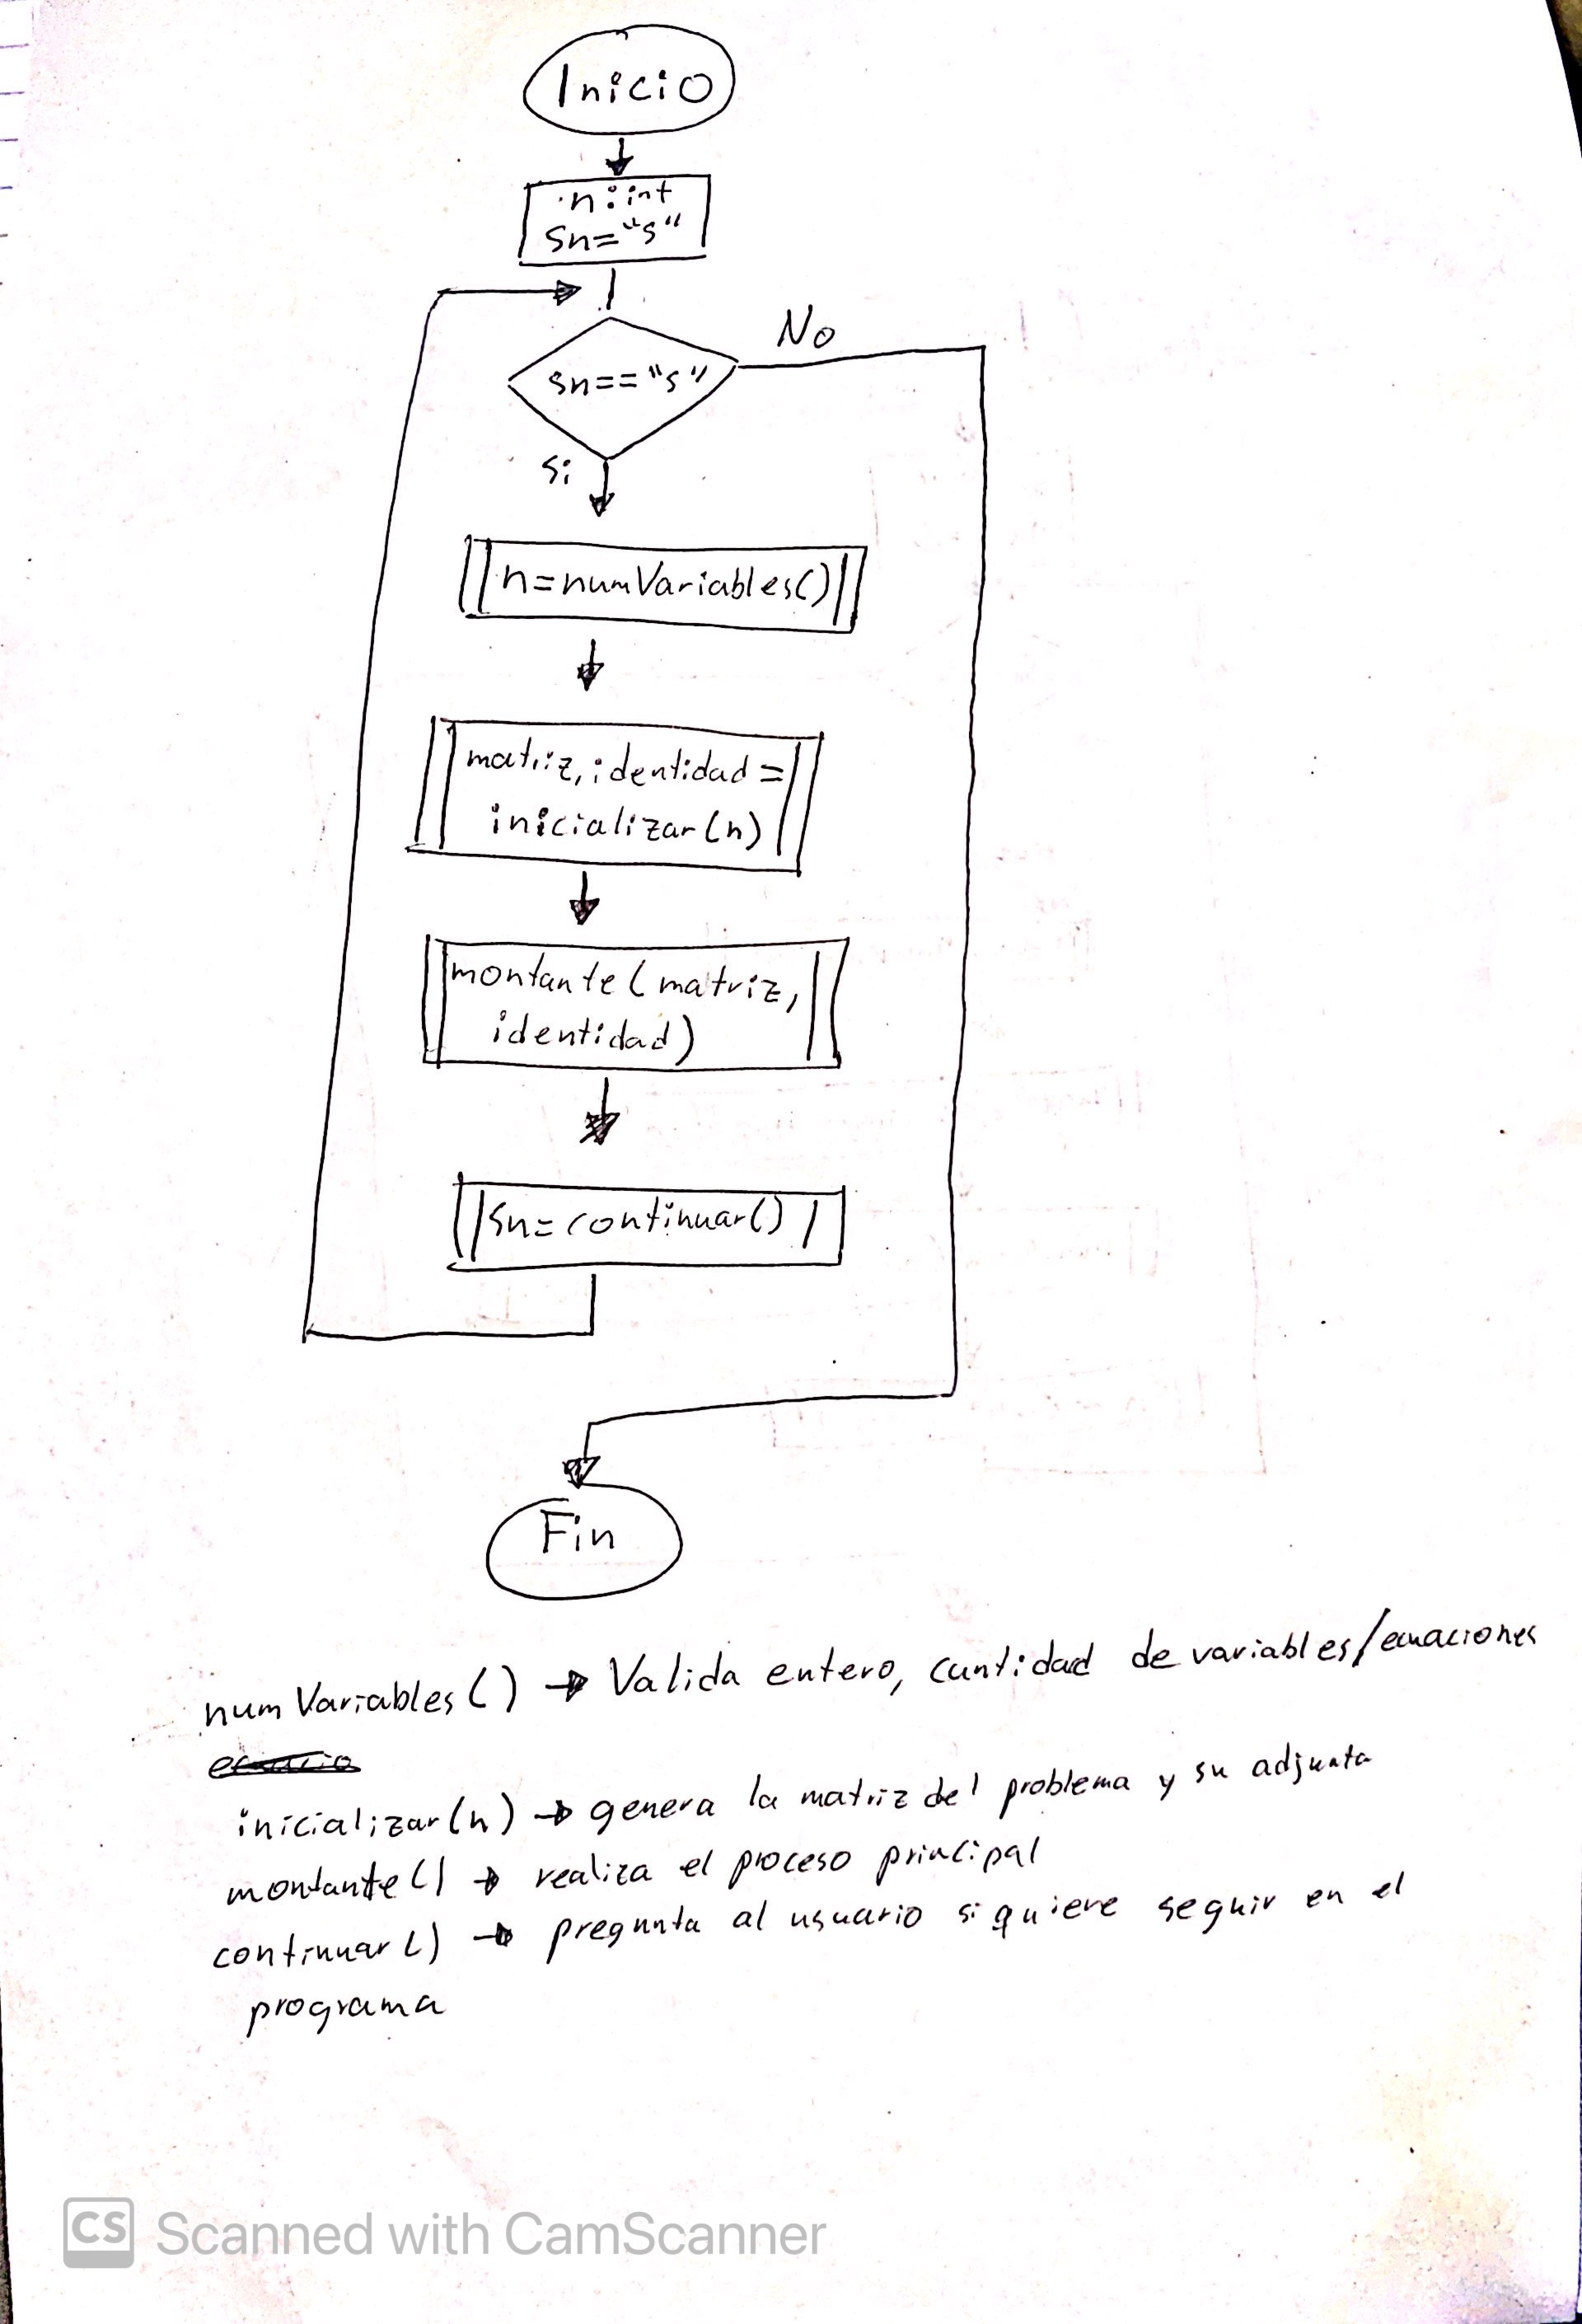 Inicio
n: int
sn="s"
No
sn=="s"
si
n=numVariables()
matriz, identidad=
inicializar(n)
montante(matriz,
identidad)
sn=continuar()
Fin
numVariables() → Valida entero, cantidad de variables/ecuaciones
inicializar(n) → genera la matriz del problema y su adjunta
montante() → realiza el proceso principal
continuar() → pregunta al usuario si quiere seguir en el
programa
CS Scanned with CamScanner